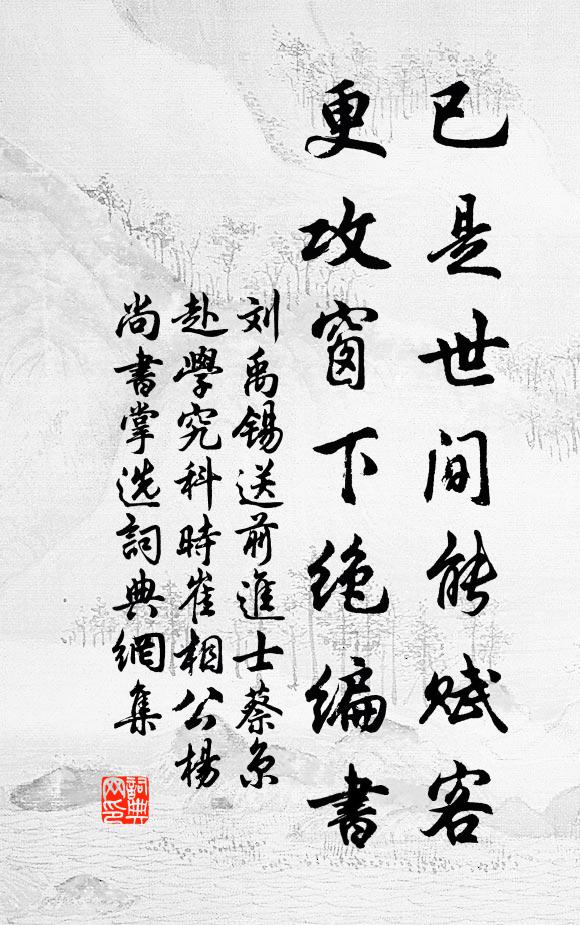 已是世间能赋客
更攻窗下绝编書
刘禹锡送前進士蔡京
赴學究科時崔相公楊
尚書掌选詞典網集
詞典网印